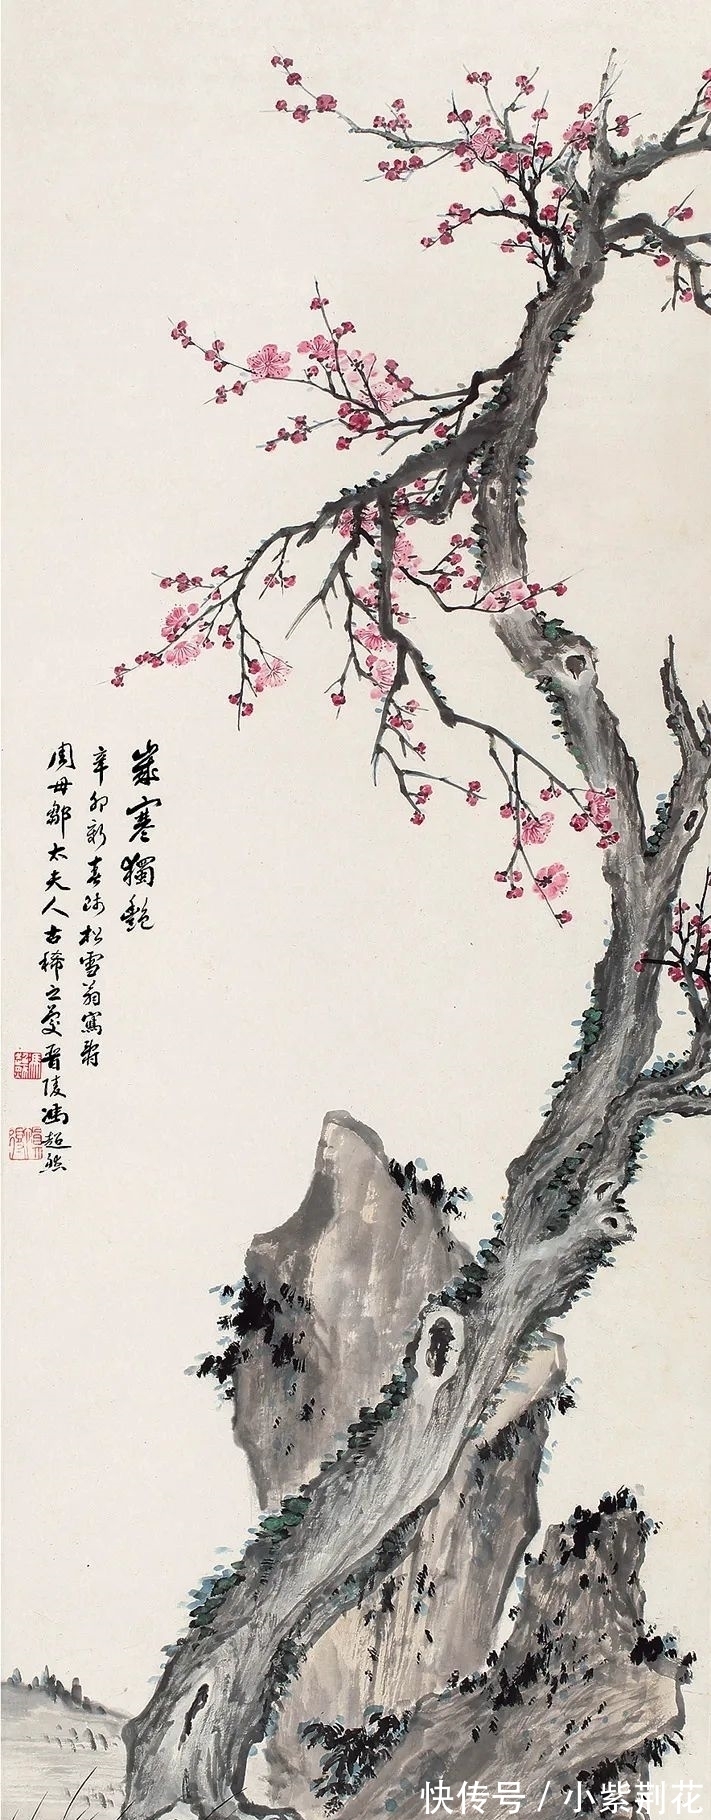 歲寒獨艷
辛卯新春師松雪翁寫壽
周母鄒太夫人古稀之慶晋陵馮超然
快传号 / 小紫荆花